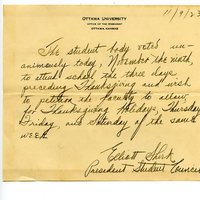 OTTAWA UNIVERSITY
OFFICE OF THE PRESIDENT
OTTAWA, KANSAS
11/9/23
The student body voted un-
animously today, November the ninth,
to attend school the three days
preceding Thanksgiving and wish
to petition the faculty to allow
for Thanksgiving Holidays, Thursday
Friday, and Saturday of the same
week.
Elliott
President Student Council